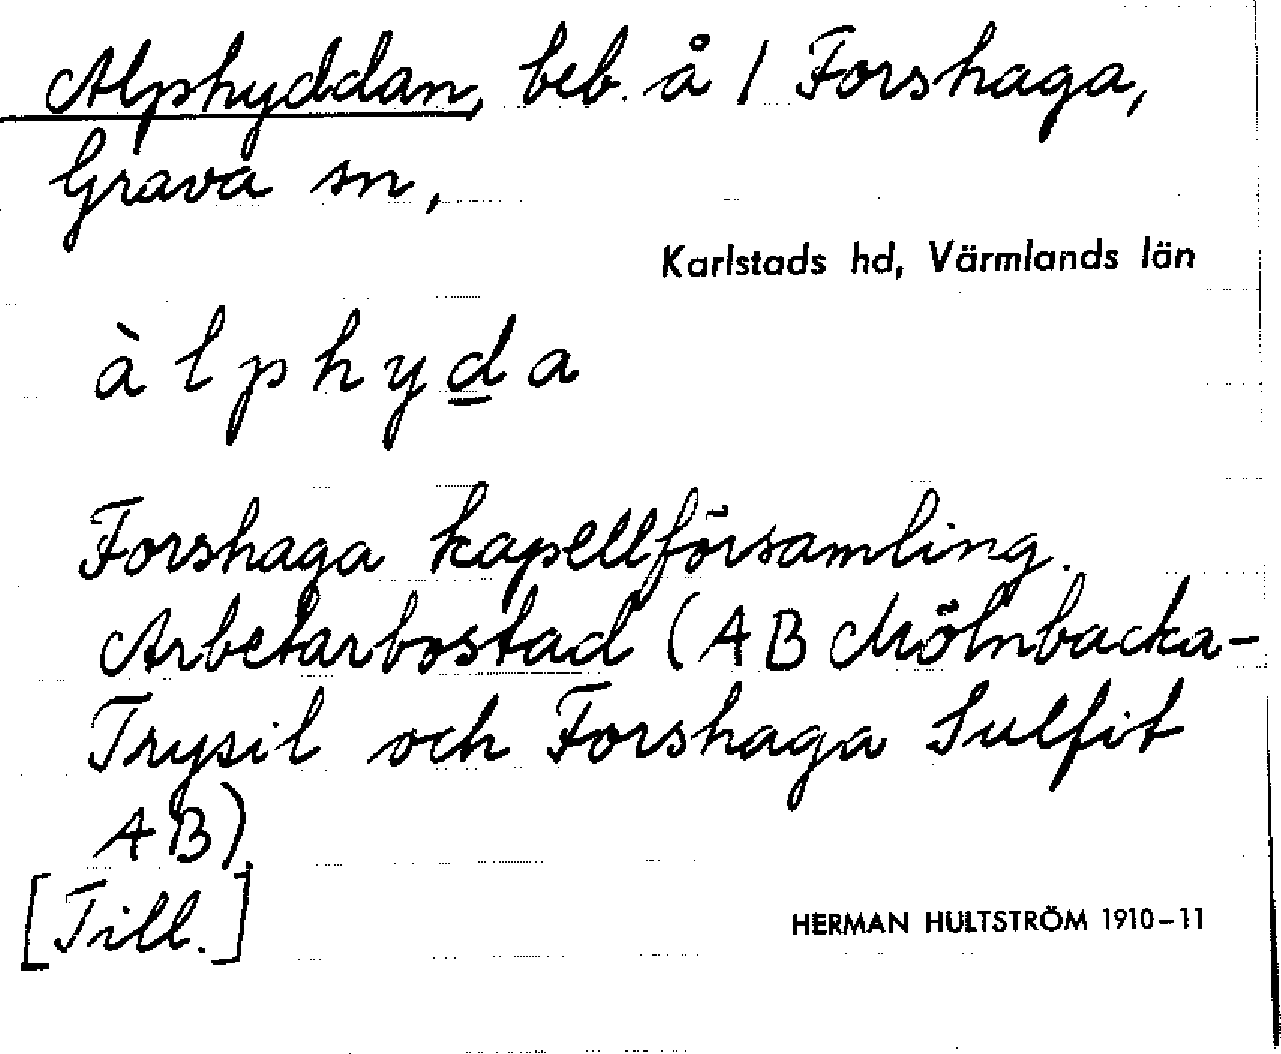 Alphyddan, beb. å 1 Forshaga,
Grava sn,
Karlstads hd, Värmlands län
àlphyda
Forshaga kapellförsamling.
Arbetarbostad (AB Mölnbacka-
Trysil och Forshaga Sulfit
AB).
[Till.]
HERMAN HULTSTRÖM 1910-11